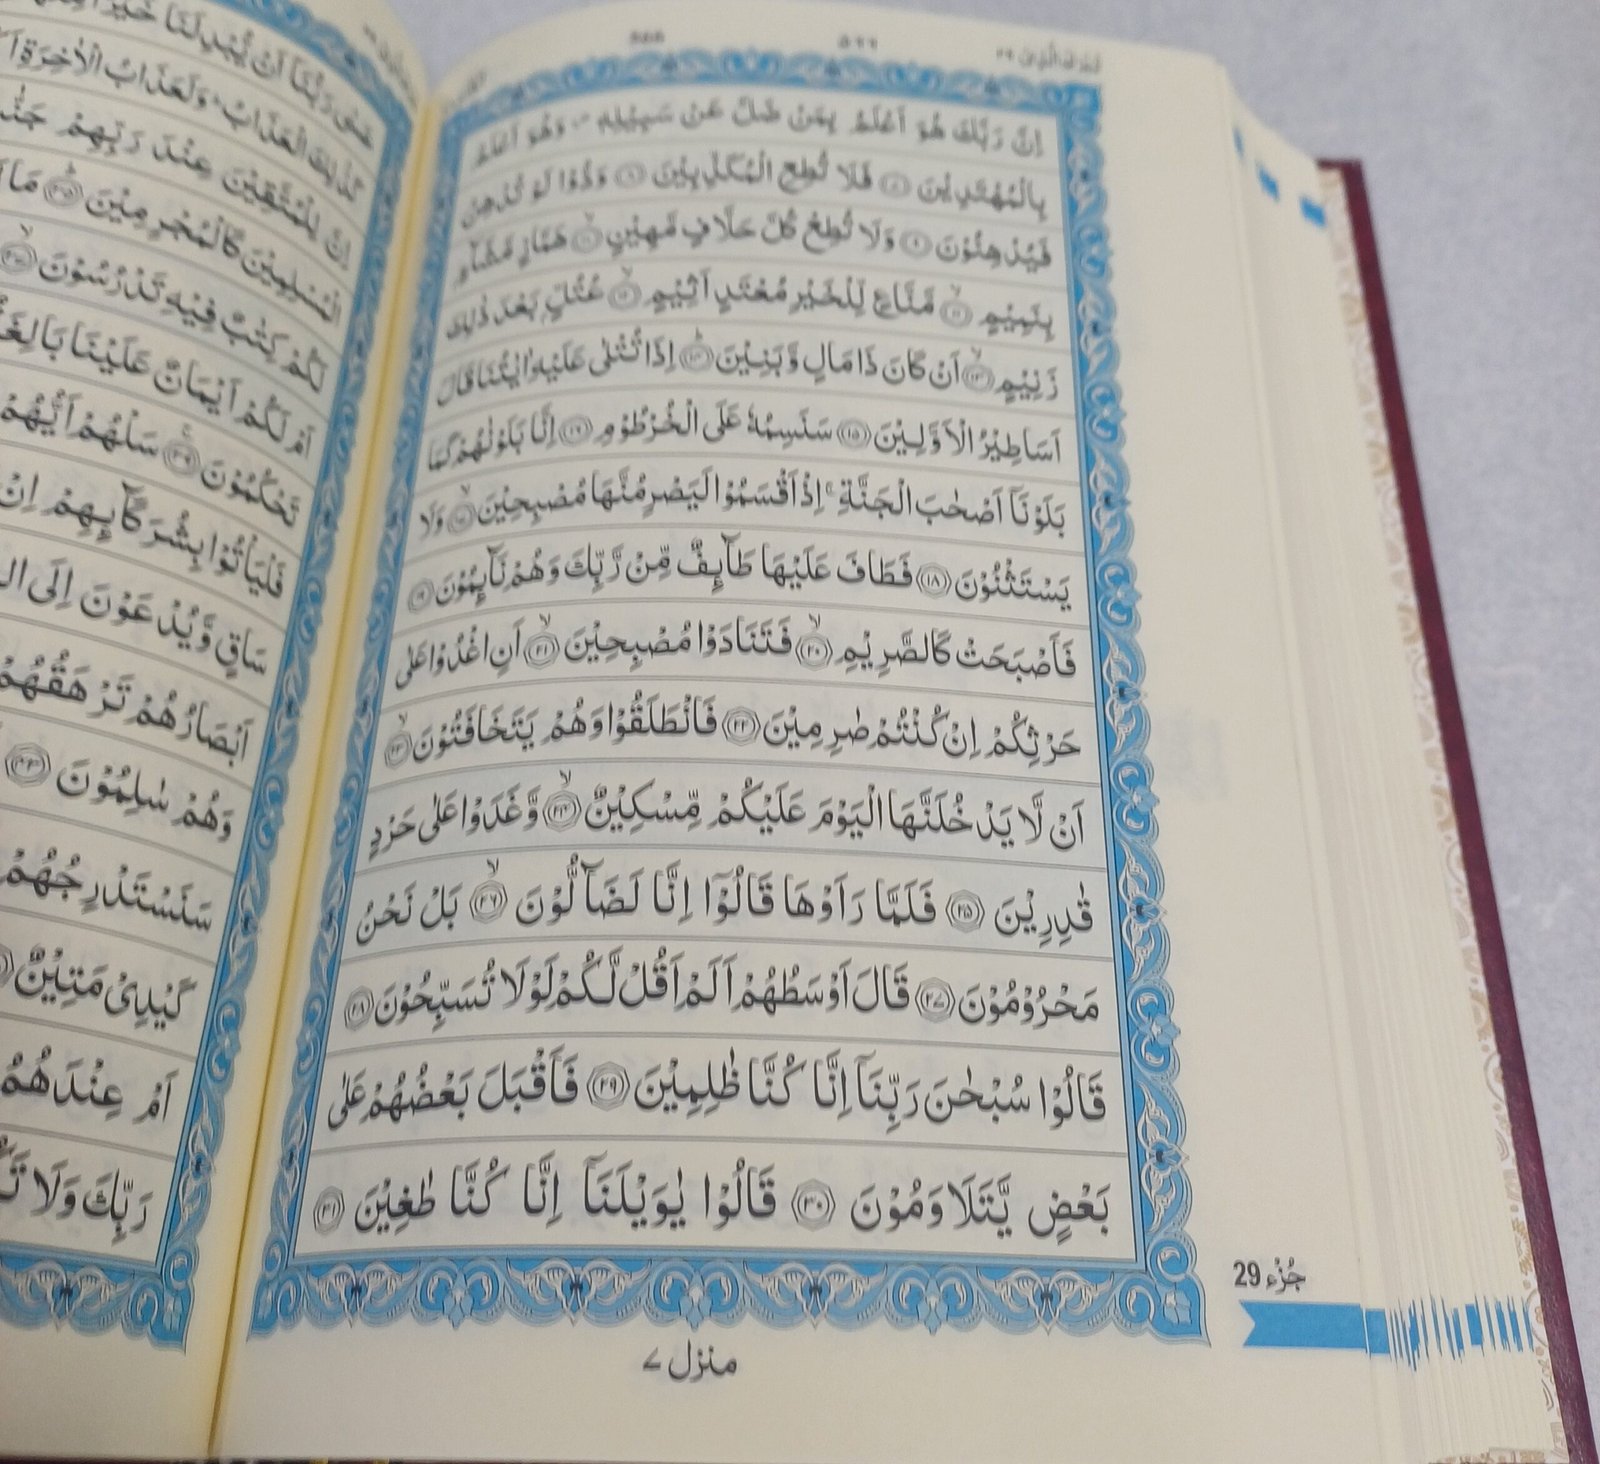 تَبٰرَكَ الَّذِىْ ٢٩
اِنَّ رَبَّكَ هُوَ اَعْلَمُ بِمَنْ ضَلَّ عَنْ سَبِيْلِهٖ ۪ وَهُوَ اَعْلَمُ
بِالْمُهْتَدِيْنَ ﴿٧﴾ فَلَا تُطِعِ الْمُكَذِّبِيْنَ ﴿٨﴾ وَدُّوْا لَوْ تُدْهِنُ
فَيُدْهِنُوْنَ ﴿٩﴾ وَلَا تُطِعْ كُلَّ حَلَّافٍ مَّهِيْنٍ ﴿١٠﴾ۙ هَمَّازٍ مَّشَّآءٍۭ
بِنَمِيْمٍ ﴿١١﴾ۙ مَّنَّاعٍ لِّلْخَيْرِ مُعْتَدٍ اَثِيْمٍ ﴿١٢﴾ۙ عُتُلٍّۭ بَعْدَ ذٰلِكَ
زَنِيْمٍ ﴿١٣﴾ۙ اَنْ كَانَ ذَا مَالٍ وَّبَنِيْنَ ﴿١٤﴾ؕ اِذَا تُتْلٰى عَلَيْهِ اٰيٰتُنَا قَالَ
اَسَاطِيْرُ الْاَوَّلِيْنَ ﴿١٥﴾ سَنَسِمُهٗ عَلَى الْخُرْطُوْمِ ﴿١٦﴾ اِنَّا بَلَوْنٰهُمْ كَمَا
بَلَوْنَآ اَصْحٰبَ الْجَنَّةِ ۚ اِذْ اَقْسَمُوْا لَيَصْرِمُنَّهَا مُصْبِحِيْنَ ﴿١٧﴾ۙ وَلَا
يَسْتَثْنُوْنَ ﴿١٨﴾ فَطَافَ عَلَيْهَا طَآئِفٌ مِّنْ رَّبِّكَ وَهُمْ نَآئِمُوْنَ ﴿١٩﴾
فَاَصْبَحَتْ كَالصَّرِيْمِ ﴿٢٠﴾ۙ فَتَنَادَوْا مُصْبِحِيْنَ ﴿٢١﴾ۙ اَنِ اغْدُوْا عَلٰى
حَرْثِكُمْ اِنْ كُنْتُمْ صٰرِمِيْنَ ﴿٢٢﴾ فَانْطَلَقُوْا وَهُمْ يَتَخَافَتُوْنَ ﴿٢٣﴾ۙ
اَنْ لَّا يَدْخُلَنَّهَا الْيَوْمَ عَلَيْكُمْ مِّسْكِيْنٌ ﴿٢٤﴾ۙ وَّغَدَوْا عَلٰى حَرْدٍ
قٰدِرِيْنَ ﴿٢٥﴾ فَلَمَّا رَاَوْهَا قَالُوْٓا اِنَّا لَضَآلُّوْنَ ﴿٢٦﴾ۙ بَلْ نَحْنُ
مَحْرُوْمُوْنَ ﴿٢٧﴾ قَالَ اَوْسَطُهُمْ اَلَمْ اَقُلْ لَّكُمْ لَوْلَا تُسَبِّحُوْنَ ﴿٢٨﴾
قَالُوْا سُبْحٰنَ رَبِّنَآ اِنَّا كُنَّا ظٰلِمِيْنَ ﴿٢٩﴾ فَاَقْبَلَ بَعْضُهُمْ عَلٰى
بَعْضٍ يَّتَلَاوَمُوْنَ ﴿٣٠﴾ قَالُوْا يٰوَيْلَنَآ اِنَّا كُنَّا طٰغِيْنَ ﴿٣١﴾
منزل ٧
جُزْء 29
عَسٰى رَبُّنَآ اَنْ يُّبْدِلَنَا خَيْرًا
كَذٰلِكَ الْعَذَابُ ؕ وَلَعَذَابُ الْاٰخِرَةِ
اِنَّ لِلْمُتَّقِيْنَ عِنْدَ رَبِّهِمْ
الْمُسْلِمِيْنَ كَالْمُجْرِمِيْنَ ﴿٣٥﴾ؕ مَا
لَكُمْ كِتٰبٌ فِيْهِ تَدْرُسُوْنَ ﴿٣٧﴾ۙ
اَمْ لَكُمْ اَيْمَانٌ عَلَيْنَا
تَحْكُمُوْنَ ﴿٣٩﴾ۚ سَلْهُمْ اَيُّهُمْ
فَلْيَاْتُوْا بِشُرَكَآئِهِمْ اِنْ
سَاقٍ وَّيُدْعَوْنَ اِلَى
اَبْصَارُهُمْ تَرْهَقُهُمْ
وَهُمْ سٰلِمُوْنَ ﴿٤٣﴾
سَنَسْتَدْرِجُهُمْ
كَيْدِىْ مَتِيْنٌ
اَمْ عِنْدَهُمُ
رَبِّكَ وَلَا